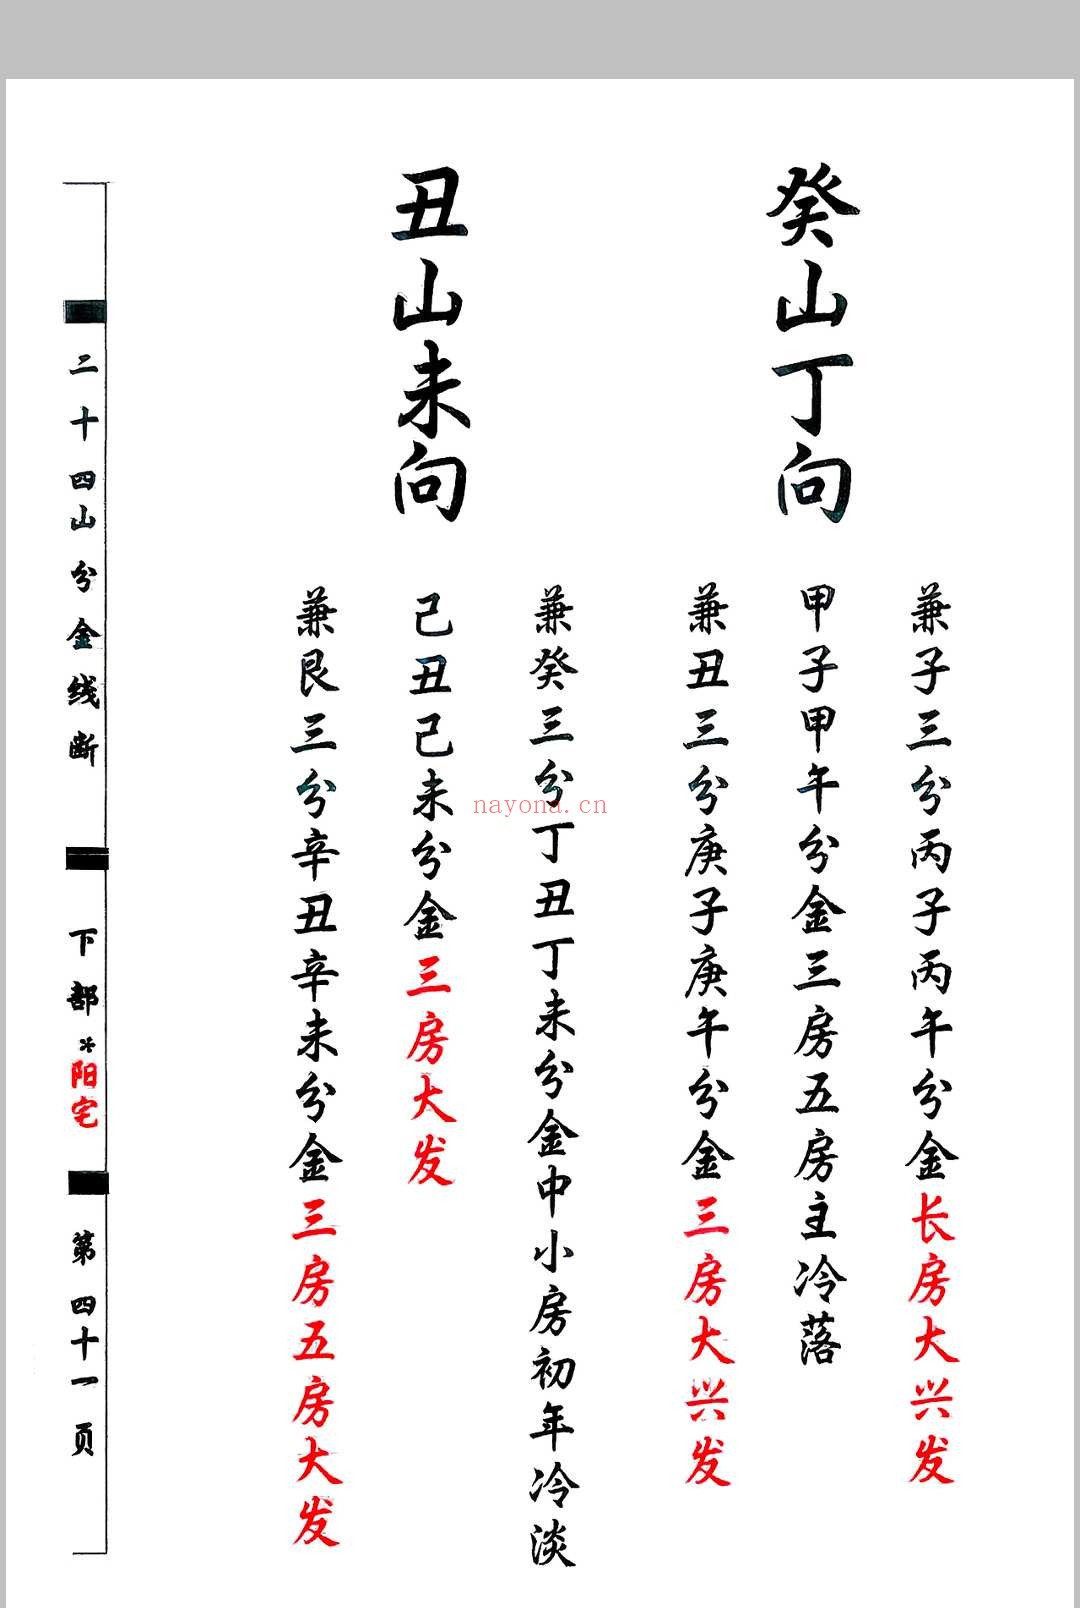 癸山丁向
兼子三分丙子丙午分金长房大兴发
甲子甲午分金三房五房主冷落
兼丑三分庚子庚午分金三房大兴发
丑山未向
兼癸三分丁丑丁未分金中小房初年冷淡
己丑己未分金三房大发
兼艮三分辛丑辛未分金三房五房大发
二十四山分金线断
下部*阳宅
第四十一页
nayona.cn